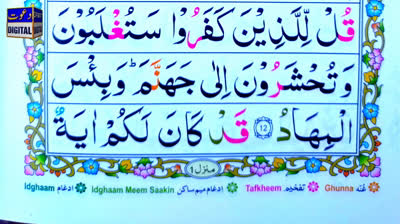 دعوت
DIGITAL
قُل لِّلَّذِيْنَ كَفَرُوْا سَتُغْلَبُوْنَ
وَتُحْشَرُوْنَ اِلٰى جَهَنَّمَؕ وَبِئْسَ
الْمِهَادُ ⑫ قَدْ كَانَ لَكُمْ اٰيَةٌ
منزل ١
Idghaam ادغام Idghaam Meem Saakin ادغام میم ساکن Tafkheem تفخیم Ghunna غنہ